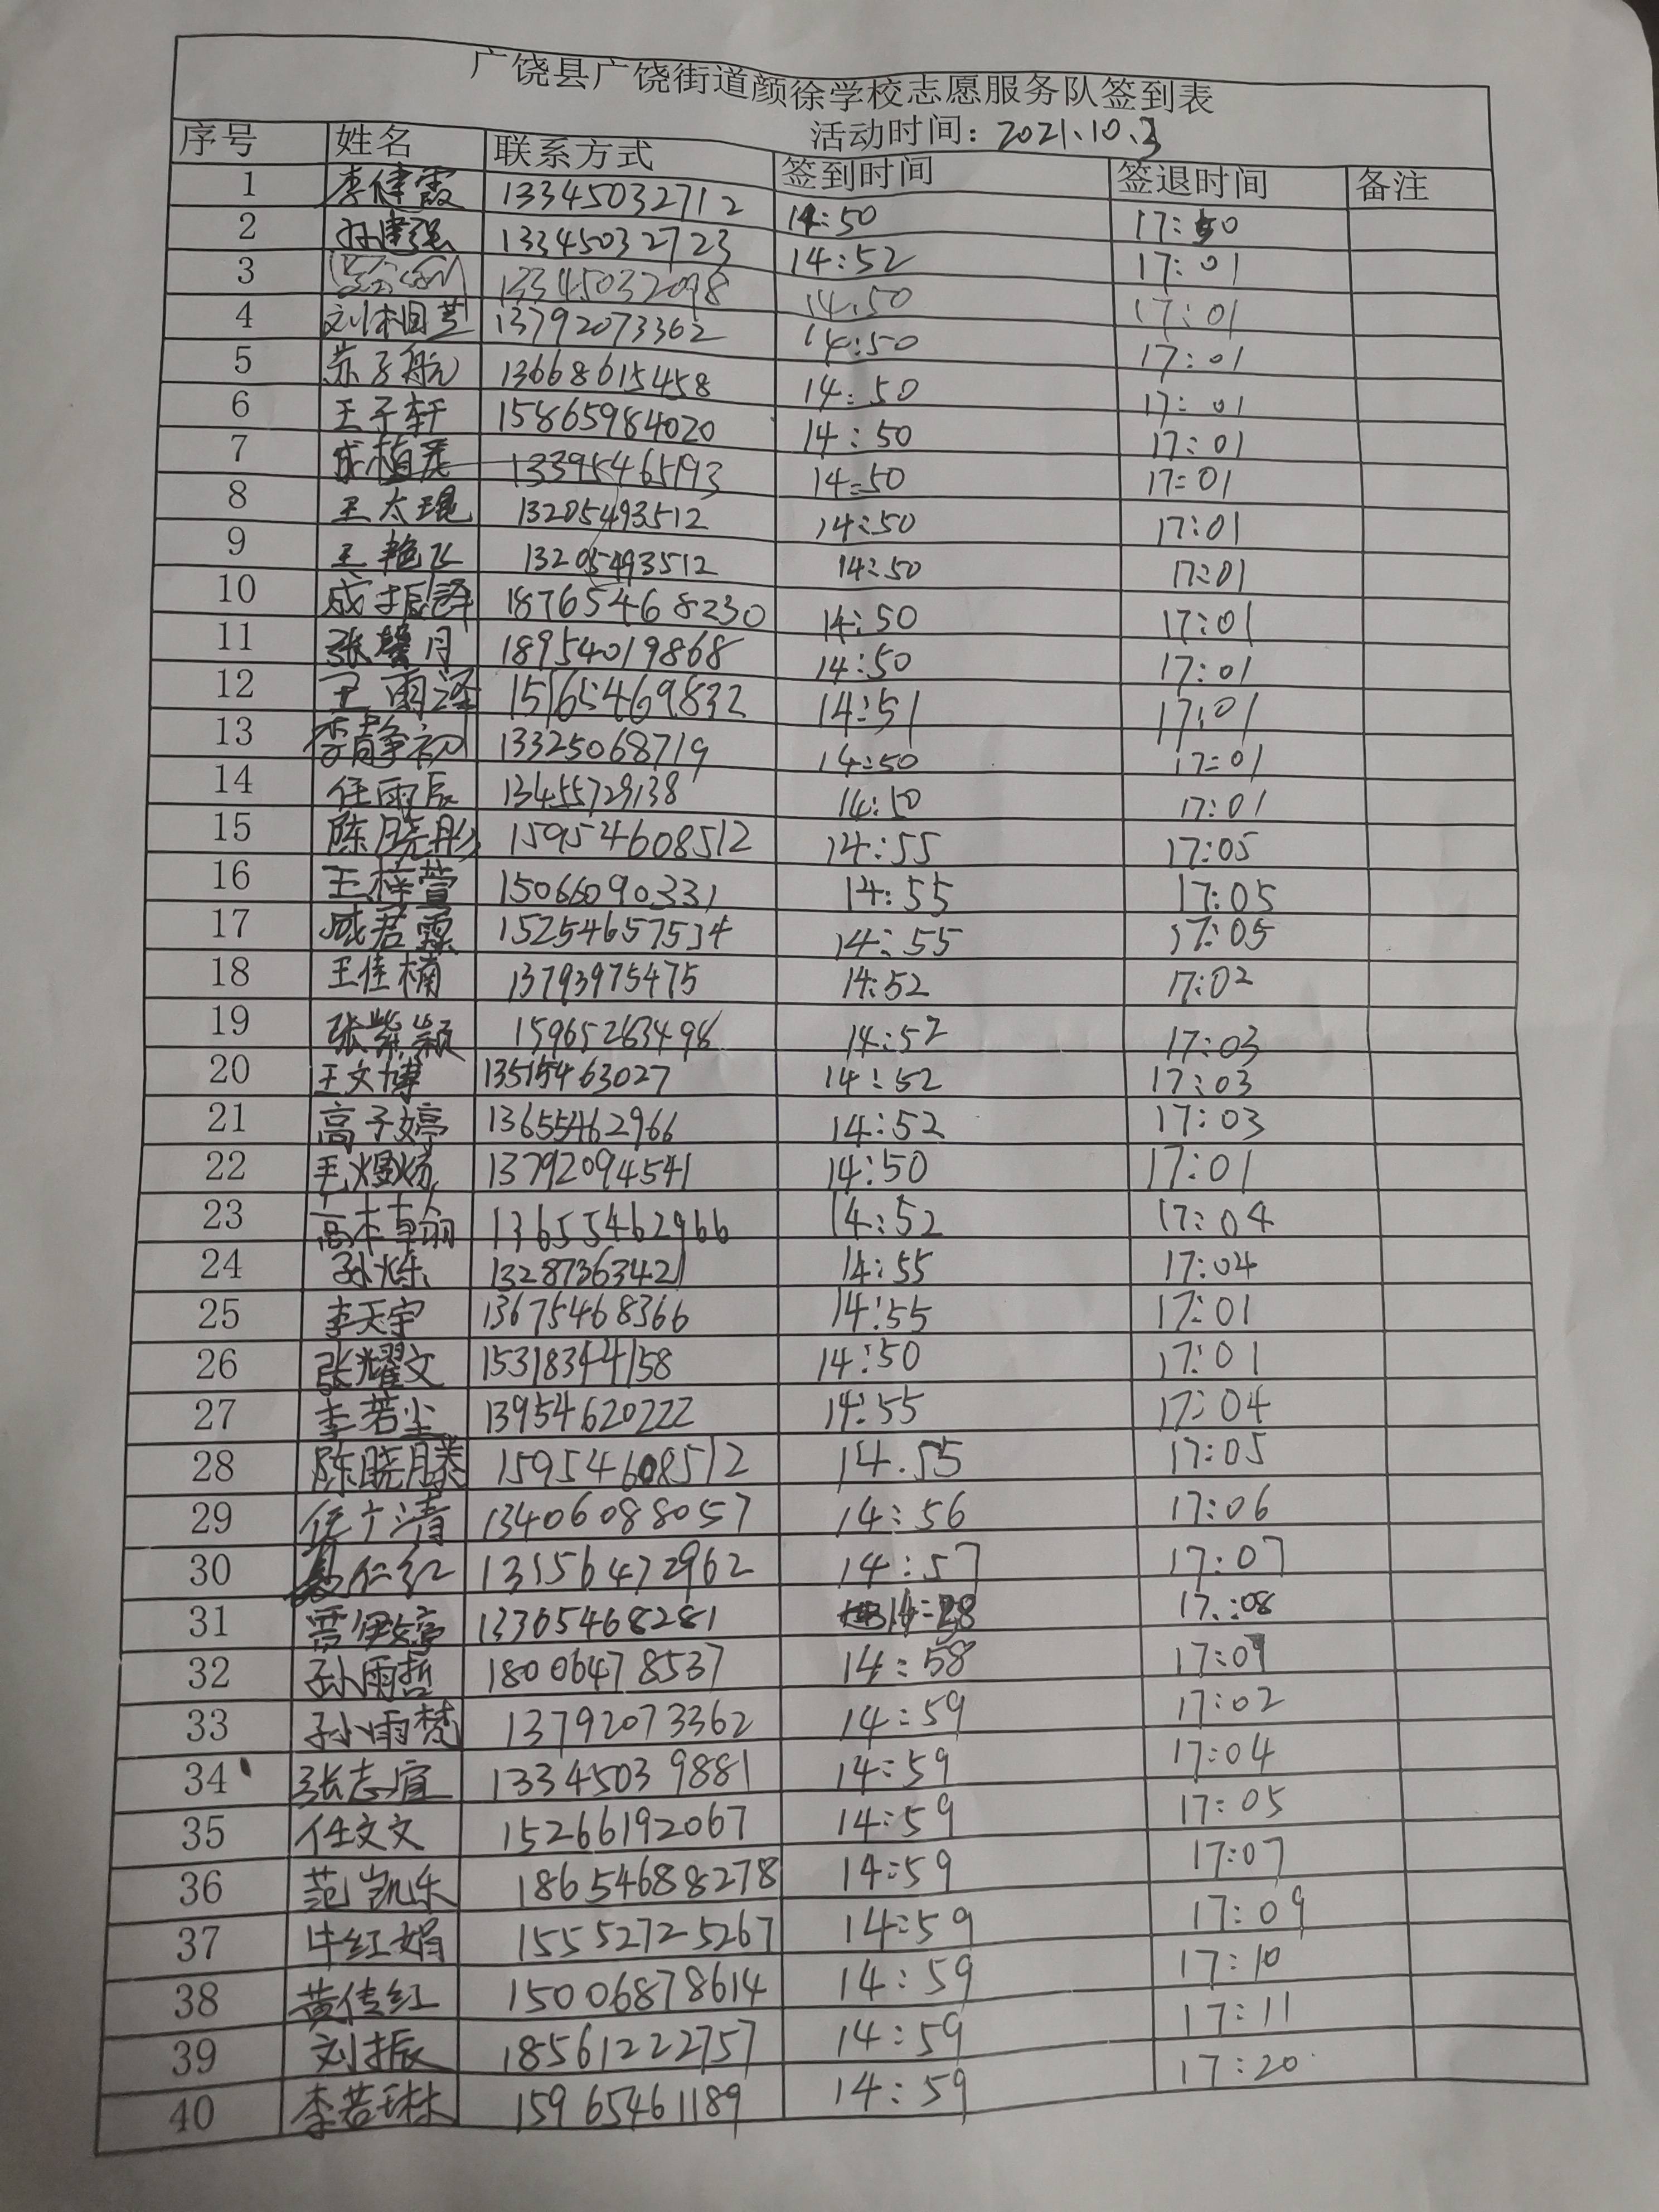 广饶县广饶街道颜徐学校志愿服务队签到表
活动时间：2021.10.3
序号 姓名 联系方式 签到时间 签退时间 备注
1 李健霞 13345032712 14:50 17:50
2 孙建强 13345032723 14:52 17:01
3 13345032098 14:50 17:01
4 刘相芝 13792073362 14:50 17:01
5 苏子航 13668615458 14:50 17:01
6 王子轩 15865984020 14:50 17:01
7 成植彦 13395465193 14:50 17:01
8 王太琨 13205493512 14:50 17:01
9 王艳飞 13205493512 14:50 17:01
10 成振译 18765468230 14:50 17:01
11 张馨月 18954019868 14:50 17:01
12 王雨泽 15165469832 14:51 17:01
13 李静初 13325068719 14:50 17:01
14 任雨辰 13455729138 14:50 17:01
15 陈晓彤 15954608512 14:55 17:05
16 王梓萱 15066090331 14:55 17:05
17 成若霖 15254657534 14:55 17:05
18 王佳楠 13793975475 14:52 17:02
19 张紫颖 15965263498 14:52 17:03
20 王文博 13515463027 14:52 17:03
21 高子婷 13655462966 14:52 17:03
22 毛煜炫 13792094541 14:50 17:01
23 高木翰 13655462966 14:52 17:04
24 孙烁 13287363421 14:55 17:04
25 李天宇 13675468366 14:55 17:01
26 张耀文 15318344158 14:50 17:01
27 李若尘 13954620222 14:55 17:04
28 陈晓腾 15954608512 14.55 17:05
29 任广清 13406088057 14:56 17:06
30 仁红 131556472962 14:57 17:07
31 贾伊婷 13365468281 17:08
32 孙雨哲 18006478537 14:58 17:09
33 孙雨梵 13792073362 14:59 17:02
34 张志宜 13345039881 14:59 17:04
35 任文文 15266192067 14:59 17:05
36 范凯乐 18654688278 14:59 17:07
37 牛红娟 15552725267 14:59 17:09
38 黄传红 15006878614 14:59 17:10
39 刘振 18561222757 14:59 17:11
40 李若琳 15965461189 14:59 17:20